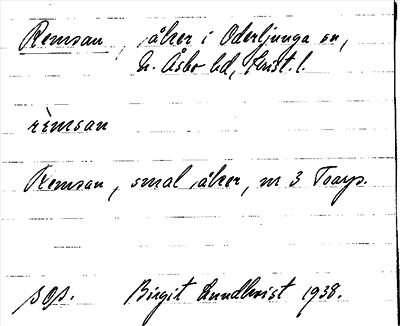 Remsan, åker i Oderljunga sn,
N. Åsbo hd, Krist. l.
rèmsan
Remsan, smal åker, nr 3 Tarps.
sop. Birgit Lundkvist 1938.